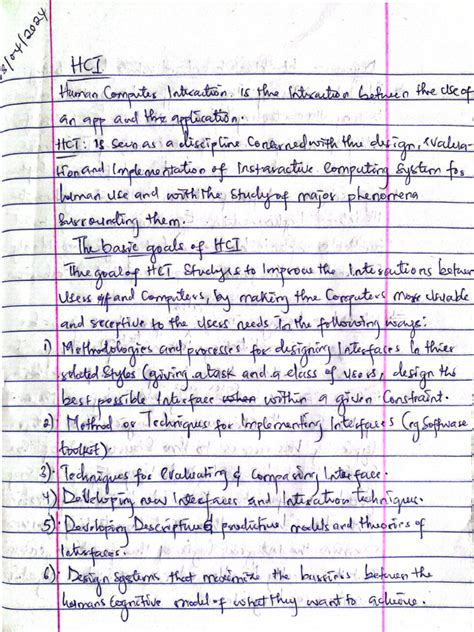 23/04/2024
HCI
Human Computer Interaction. is the Interaction between the use of
an app and the application.
HCI: Is seen as a discipline Concerned with the design, evalua-
tion and Implementation of Interactive Computing System for
human use and with the study of major phenomena
Surrounding them.
The basic goals of HCI
The goal of HCI Study is to Improve the Interactions between
Users of and Computers, by making the Computers more Usable
and receptive to the Users needs In the following ways:
1) Methodologies and processes for designing Interfaces In their
related Styles (giving a task and a class of users, design the
best possible Interface when within a given Constraint.
2) Method or Techniques for Implementing Interfaces (eg Software
toolkit).
3) Techniques for evaluating & Comparing Interface.
4) Developing new Interfaces and Interaction techniques.
5) Developing Descriptive & predictive models and theories of
Interfaces.
6) Design Systems that maximize the barriers between the
humans Cognitive model of what they want to achieve.